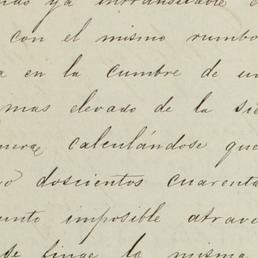 ya intransitable
con el mismo rumbo
en la cumbre de un
mas elevado de la sie
calculándose que
doscientos cuarenta
unto imposible atrave
se finge la misma